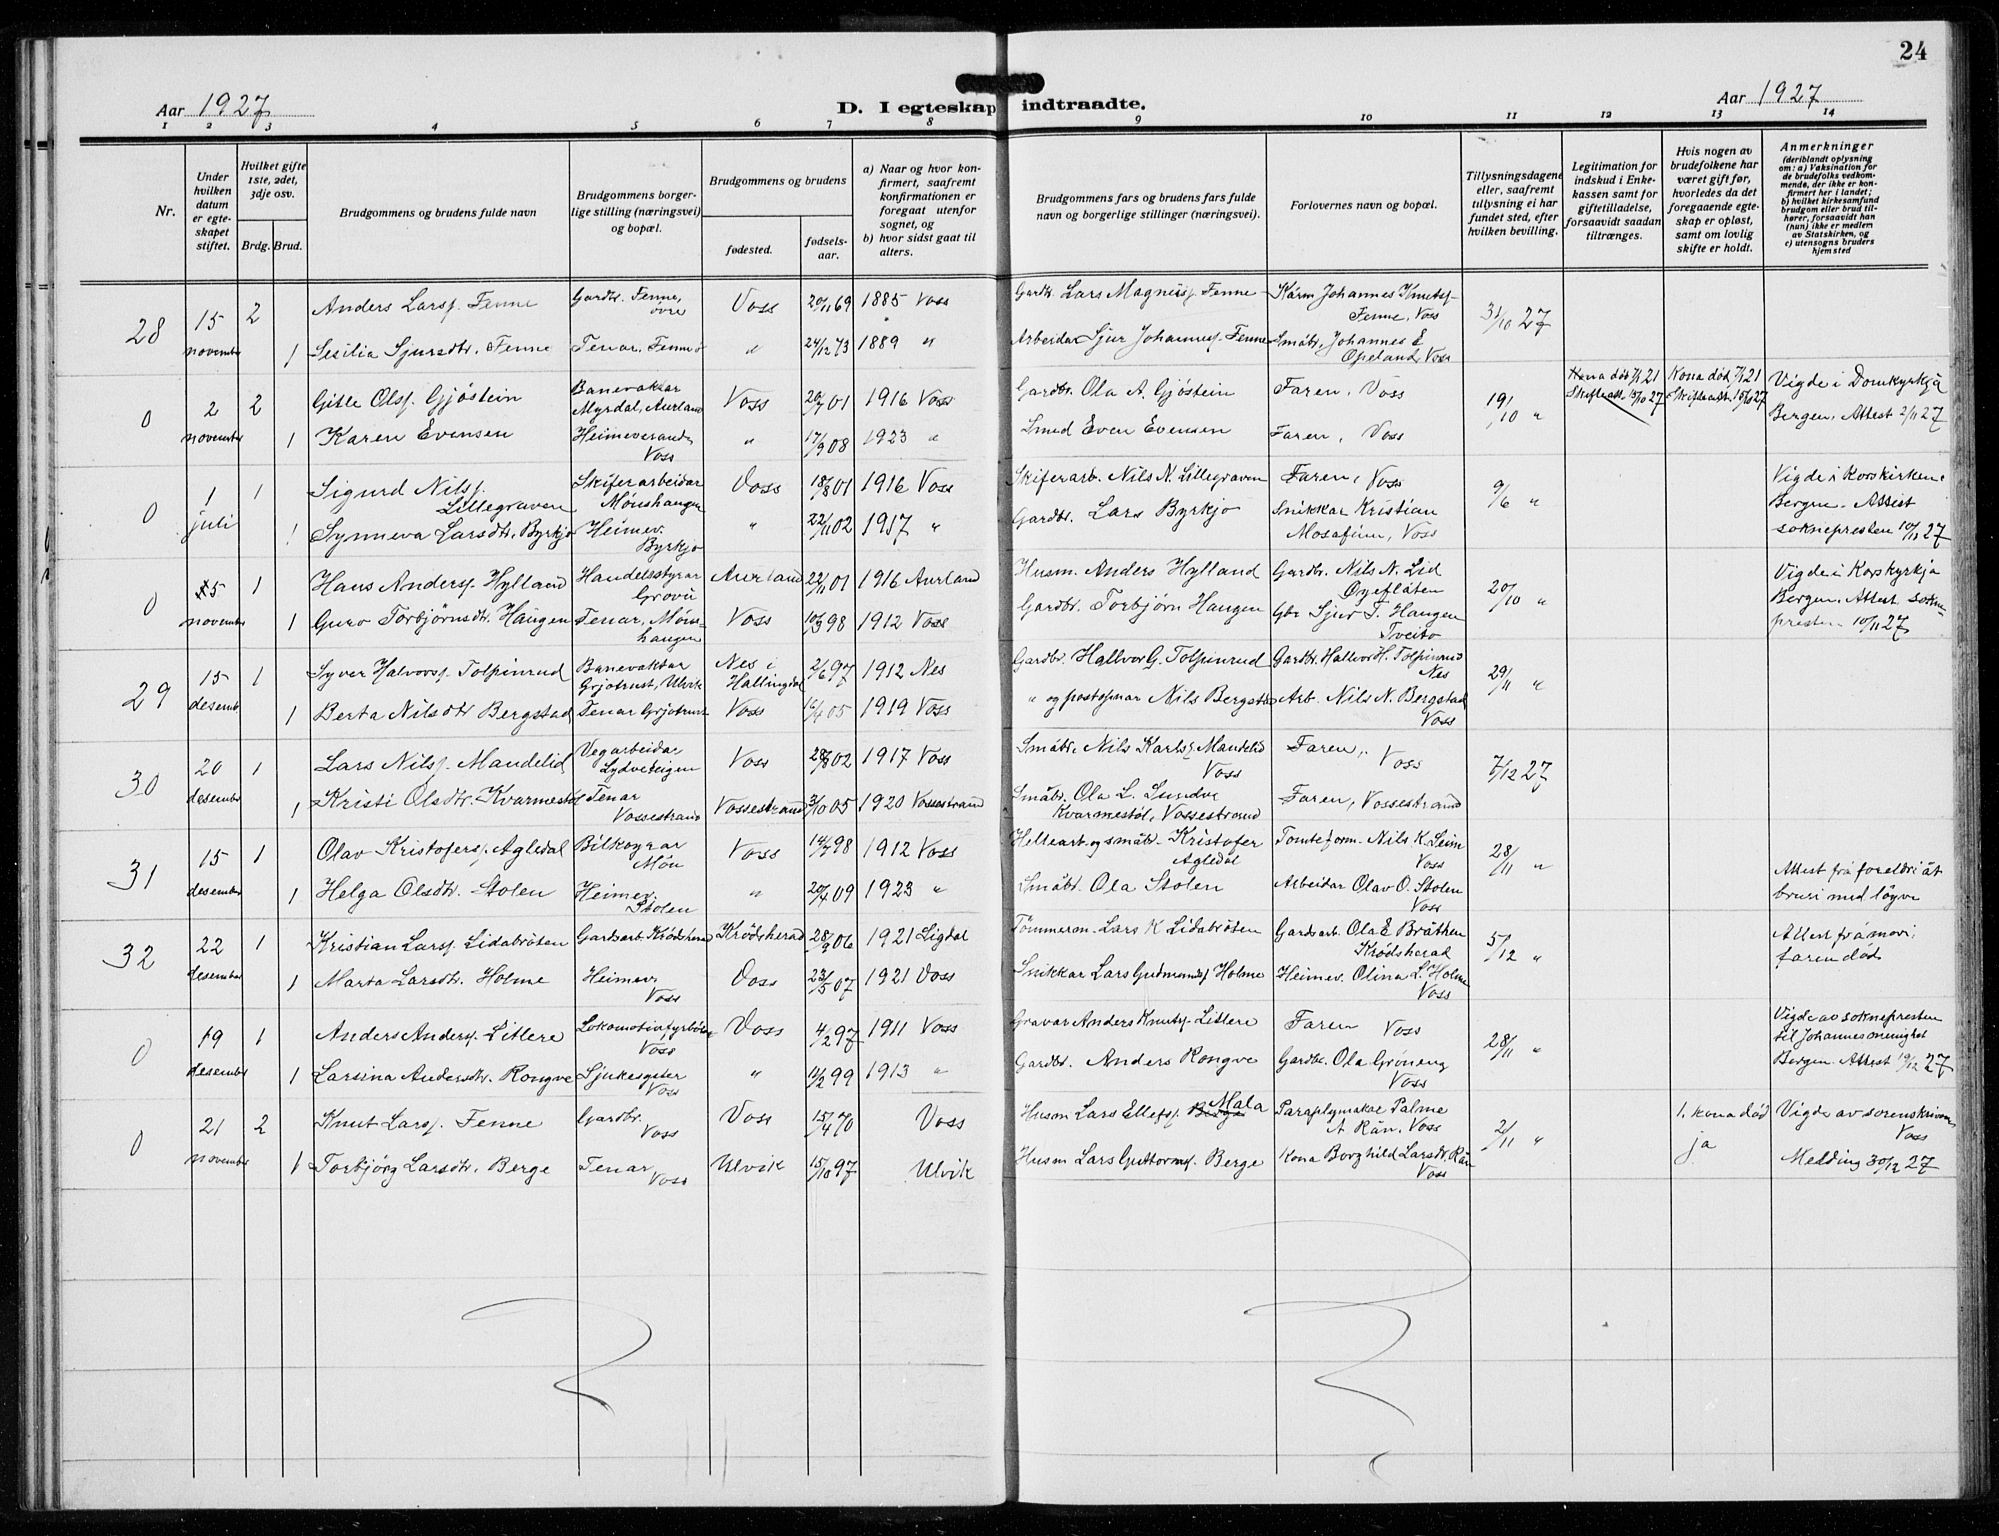 24
Aar 1927
D. I egteskap indtraadte.
Aar 1927
1 2 3 4 5 6 7 8 9 10 11 12 13 14
Nr.
Under hvilken datum er egteskapet stiftet.
Hvilket gifte 1ste, 2det, 3dje osv.
Brdg. Brud.
Brudgommens og brudens fulde navn
Brudgommens borgerlige stilling (næringsvei) og bopæl.
Brudgommens og brudens
fødested.
fødselsaar.
a) Naar og hvor konfirmert, saafremt konfirmationen er foregaat utenfor sognet, og
b) hvor sidst gaat til alters.
Brudgommens fars og brudens fars fulde navn og borgerlige stillinger (næringsvei).
Forlovernes navn og bopæl.
Tillysningsdagene eller, saafremt tillysning ei har fundet sted, efter hvilken bevilling.
Legitimation for indskud i Enkekassen samt for giftetilladelse, forsaavidt saadan tiltrænges.
Hvis nogen av brudefolkene har været gift før, hvorledes da det foregaaende egteskap er opløst, samt om lovlig skifte er holdt.
Anmerkninger
(deriblandt oplysning om: a) Vaksination for de brudefolks vedkommende, der ikke er konfirmert her i landet; b) hvilket kirkesamfund brudgom eller brud tilhører, forsaavidt han (hun) ikke er medlem av Statskirken, og c) utensogns bruders hjemsted
28 15 november 2 Anders Larss. Fenne Gardbr. Fenne, øvre Voss 20/11 69 1885 Voss Gardbr. Lars Magnuss. Fenne Kårm Johannes Knutss. Fenne, Voss 31/10 27
1 Sesilia Sjursdtr. Fenne Tenar, Fenne " 24/12 73 1889 " Arbeidar Sjur Johanness. Fenne Småbr. Johannes E Opeland, Voss
0 2 november 2 Gitle Olss. Gjøstein Banevaktar Myrdal, Aurland Voss 20/7 01 1916 Voss Gardbr. Ola A. Gjøstein Faren, Voss 19/10 " Kona død 7/1 21 Skifteatt. 15/10 27 Kona død 7/1 21 Skifteatt. 15/10 27 Vigde i Domkyrkja Bergen. Attest 2/11 27
1 Karen Evensen Heimeverande Voss " 17/9 08 1923 " Smed Even Evensen Faren, Voss
0 1 juli 1 Sigurd Nilss. Lillegraven Skiferarbeidar Mønshaugen Voss 18/8 01 1916 Voss Skiferarb. Nils N. Lillegraven Faren, Voss 9/6 " Vigde i Korskirken, Bergen. Attest soknepresten 10/11 27
1 Synneva Larsdtr. Byrkjo Heimev. Byrkjo " 22/11 02 1917 " Gardbr. Lars Byrkjo Snikkar Kristian Mosafinn, Voss
0 5 november 1 Hans Anderss. Hylland Handelsstyrar Grovu Aurland 22/11 01 1916 Aurland Husm. Anders Hylland Gardbr. Nils N. Lid Øyeflåten 20/10 " Vigde i Korskyrkja Bergen. Attest soknepresten 10/11 27
1 Guro Torbjørnsdtr. Haugen Tenar, Mønshaugen Voss 10/3 98 1912 Voss Gardbr. Torbjørn Haugen Gbr Sjur T. Haugen Tveito
29 15 desember 1 Syver Halvorss. Tolpinrud Banevaktar Grjotrust, Ulvik Nes i Hallingdal 2/6 97 1912 Nes Gardbr. Hallvor G. Tolpinrud Gardbr. Hallvor H. Tolpinrud Nes 29/11 "
1 Berta Nilsdtr Bergstad Tenar Grjotrust Voss 16/4 05 1919 Voss " og postopnar Nils Bergstad Arb. Nils N. Bergstad Voss
30 20 desember 1 Lars Nilss. Mandelid Vegarbeidar Lydveteigen Voss 28/8 02 1917 Voss Småbr. Nils Karlss. Mandelid Voss Faren, Voss 7/12 27
1 Kristi Olsdtr. Kvarmestøl Tenar Vossestrand Vossestrand 3/10 05 1920 Vossestrand Småbr. Ola L. Sundve Kvarmestøl, Vossestrand Faren, Vossestrand
31 15 desember 1 Olav Kristofers. Agledal Bilkøyrar Møn Voss 14/7 98 1912 Voss Hellearb. og småbr. Kristofer Agledal Tomteform. Nils K. Leim Voss 28/11 "
1 Helga Olsdtr. Stolen Heimev. Stolen " 20/4 09 1923 " Småbr. Ola Stolen Arbeidar Olav O. Stolen Voss Attest frå foreldri åt bruri med løyve
32 22 desember 1 Kristian Larss. Lidabråten Gardsarb. Krødsherad Krødsherad 28/9 06 1921 Sigdal Tømmerm. Lars K Lidabråten Gardsarb. Ola E Bråthen Krødsherad 5/12 " Attest frå mori, faren død
1 Marta Larsdtr. Holme Heimev. Voss Voss 23/5 07 1921 Voss Snikkar Lars Gudmunds. Holme Heimev. Olina L. Holme Voss
0 19 desember 1 Anders Anderss. Litlere Lokomotivfyrbøtar Voss Voss 4/2 97 1911 Voss Gravar Anders Knutss. Litlere Faren Voss 28/11 " Vigde av soknepresten til Johannesmenighet Bergen. Attest 19/12 27
1 Larsina Andersdtr. Rongve Sjukesyster Voss " 11/2 99 1913 " Gardbr. Anders Rongve Gardbr. Ola Grøneng Voss
0 21 november 2 Knut Larss. Fenne Gardbr. Voss Voss 15/4 70 Voss Husm Lars Ellefss. Mala Paraplymakar Palme A Rån, Voss 2/11 " 1. kona død ja Vigde av sorenskrivaren Voss Melding 30/12 27
1 Torbjørg Larsdtr. Berge Tenar Voss Ulvik 15/10 97 Ulvik Husm Lars Guttorms. Berge Kona Borghild Larsdtr. Rån Voss